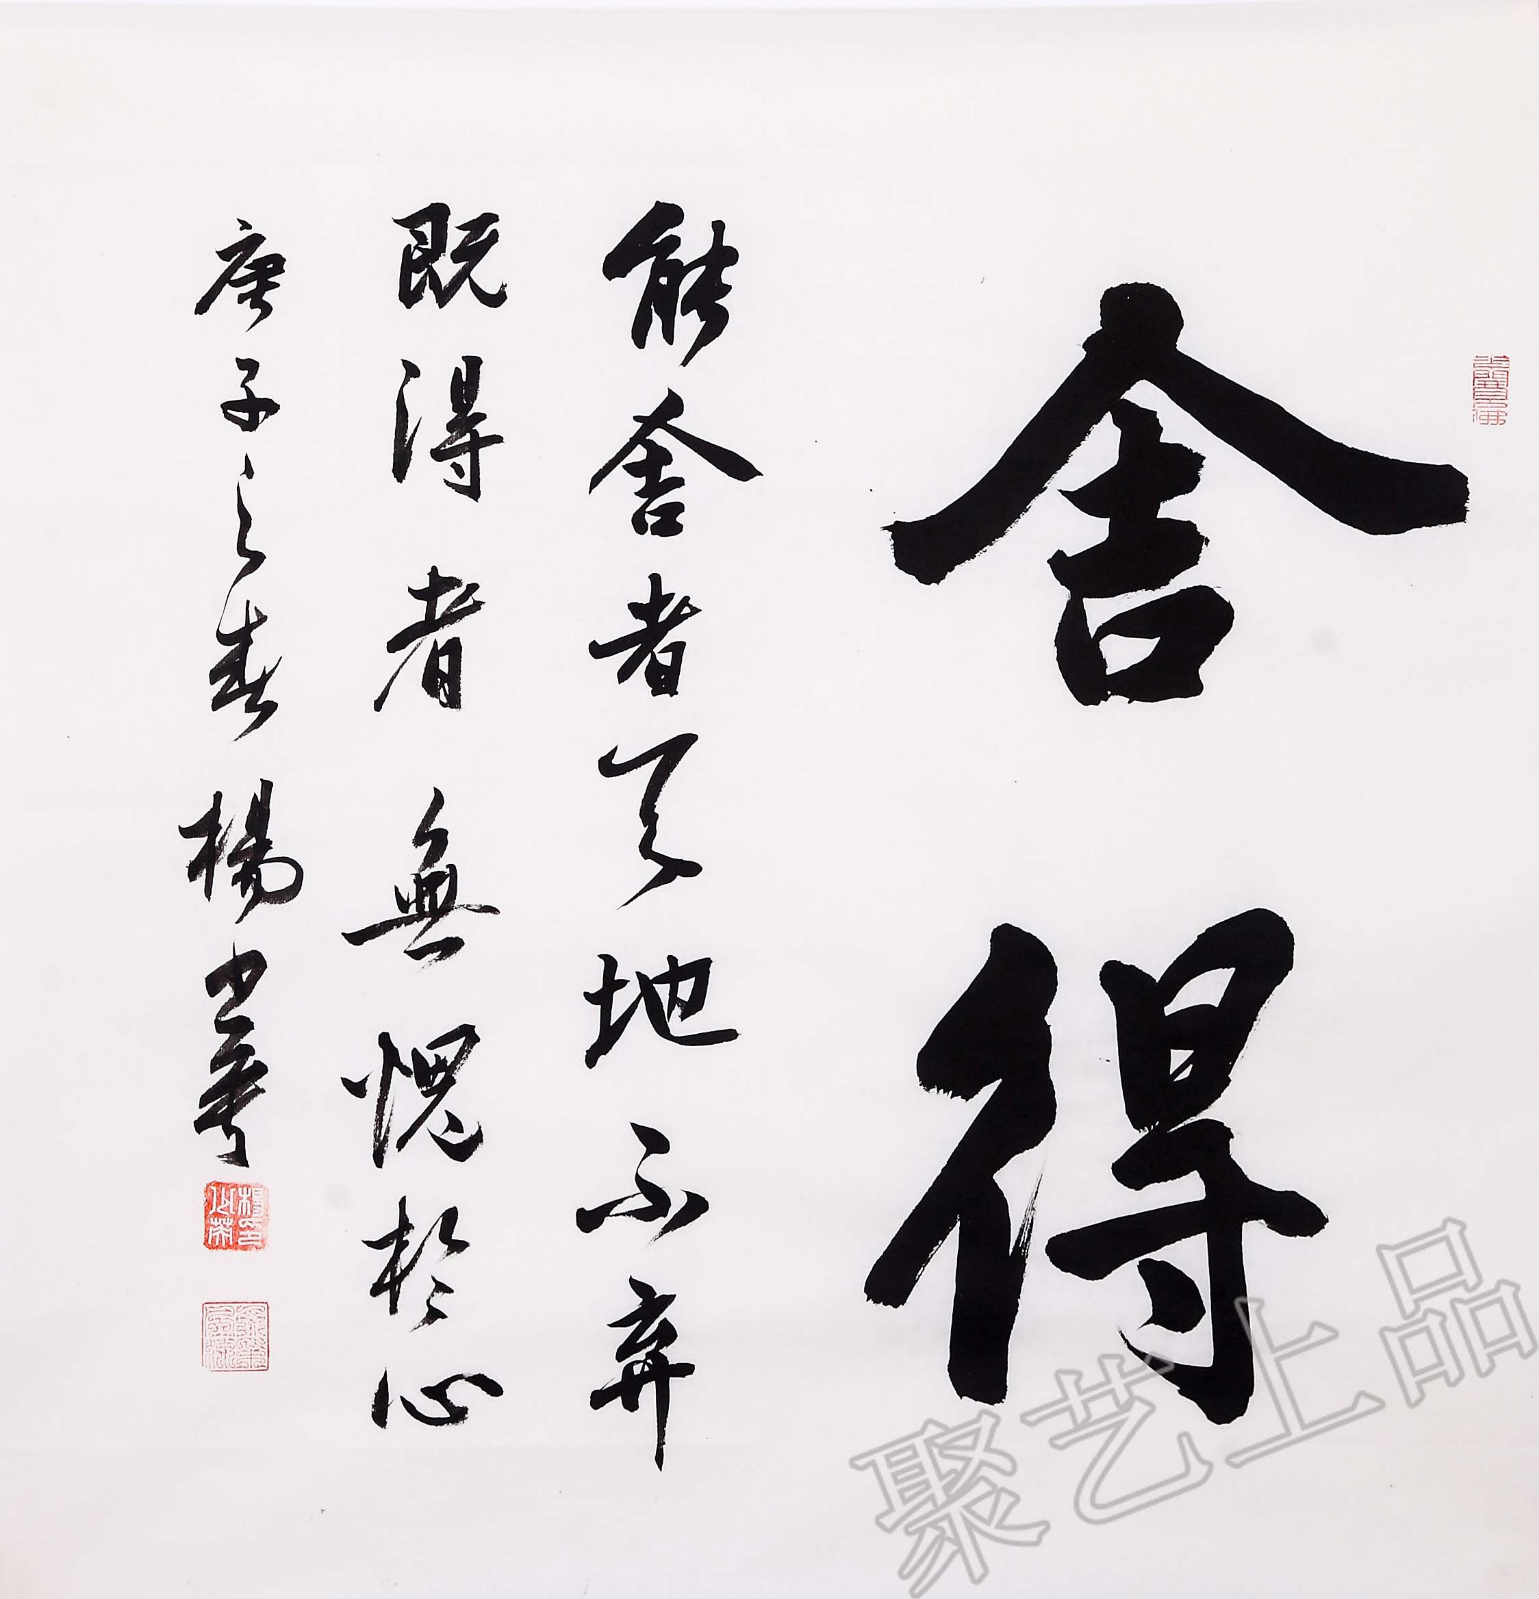 舍得
能舍者天地不弃
既得者無愧於心
庚子之春楊少華
聚艺上品